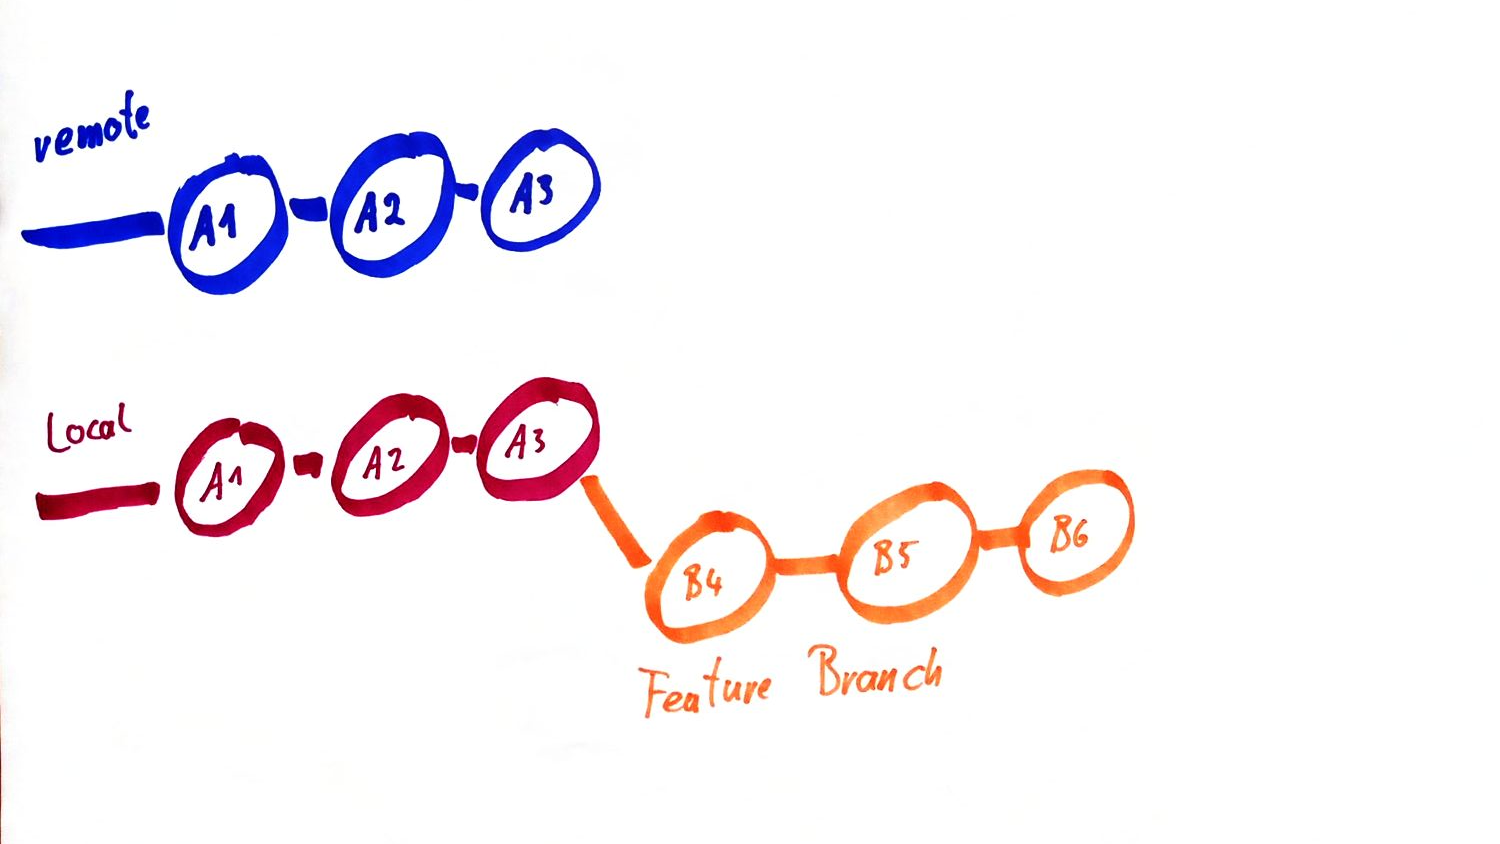 remote
A1 A2 A3
Local
A1 A2 A3
B4 B5 B6
Feature Branch